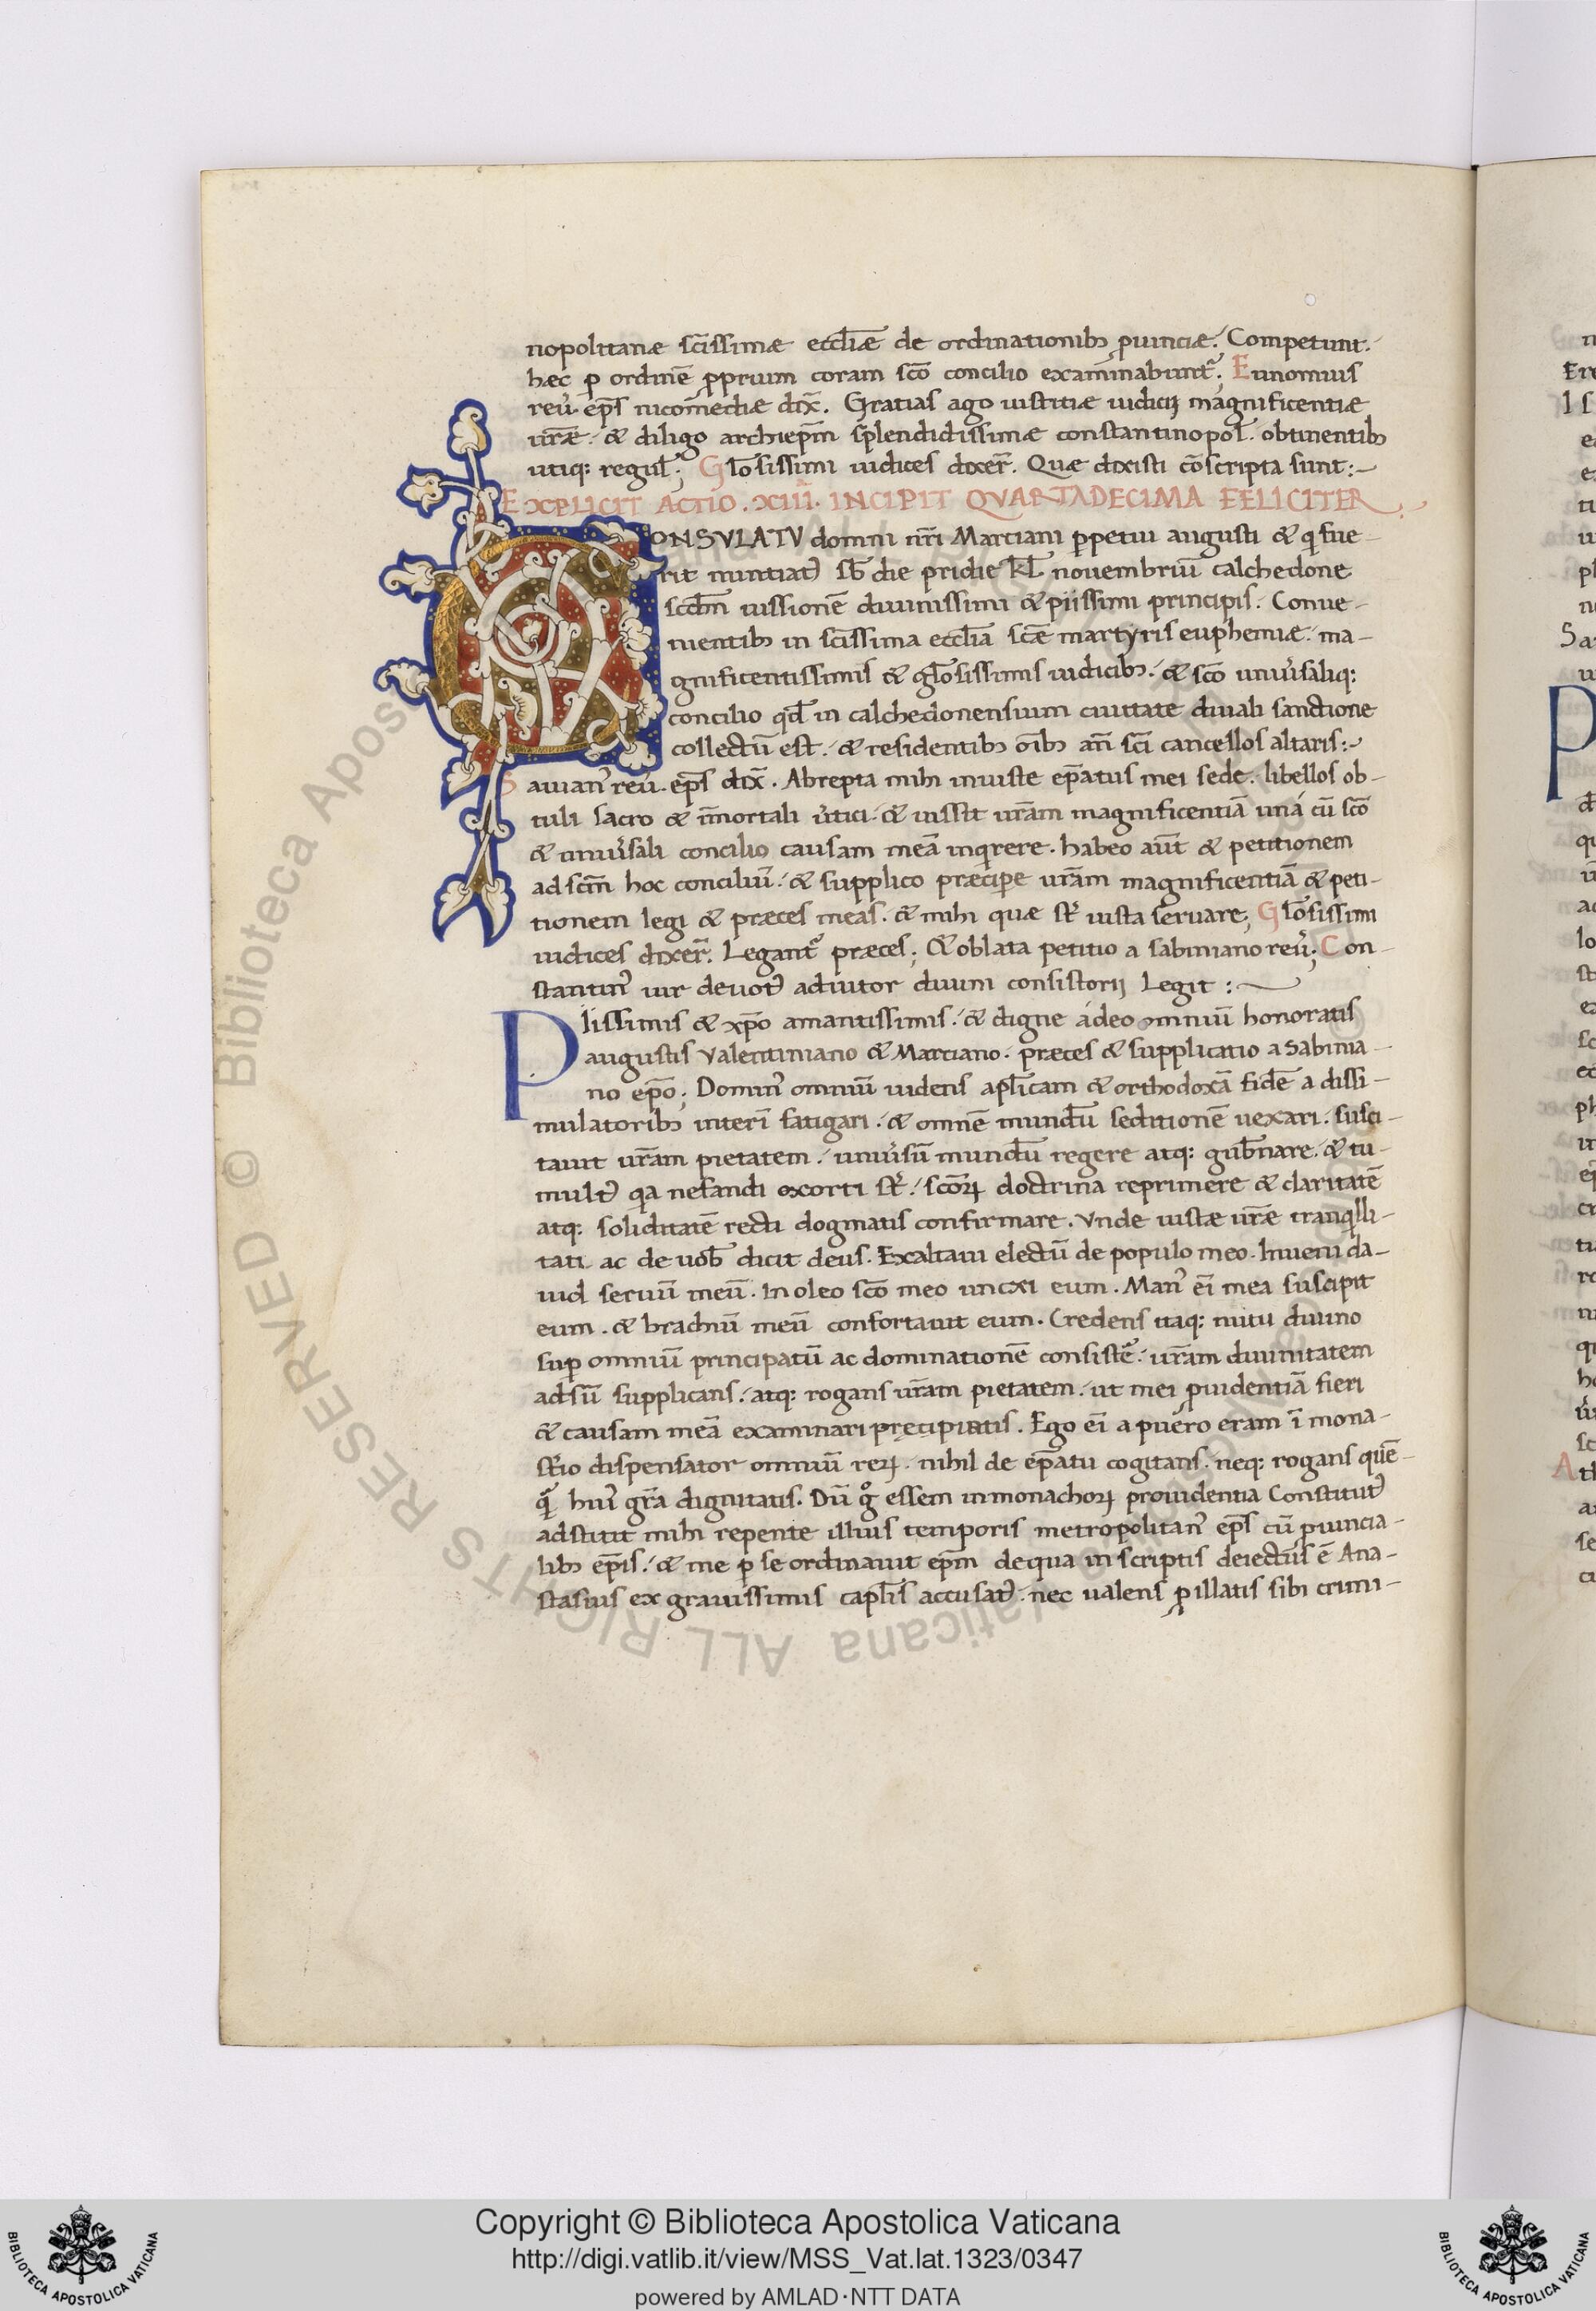 nopolitanæ scīssimæ eccl̄iæ de ordinationib; ꝓuinciæ. Competunt.
hæc ꝑ ordinē ꝓprium coram scō concilio examinabunt᷑. Eunomius
reu̕. ep̄s nicomediæ dix̄. Gratias ago iustitiæ iudicij magnificentiæ
ur̄æ. & diligo archiep̄m splendidissimæ constantinopol̄. obtinentib;
utiq: regul̄; Gl̄osissimi iudices dixer̄. Quæ dixisti cōscripta sunt:~
EXPLICIT ACTIO .XIII. INCIPIT QVARTADECIMA FELICITER
CONSVLATV domni nr̄i Marciani ꝑpetui augusti & q fue-
rit nuntiatꝰ sb̄ die pridie kl̄ novembriū calchedone
scdm̄ iussionē diuinissimi & piissimi principis. Conue-
nientib; in scīssima eccl̄ia scē martyris euphemiæ. ma-
gnificentissimis & gl̄osissimis iudicib;. & scō uniu̕saliq:
concilio qd̄ in calchedonensium ciuitate diuali sanctione
collectū est. & residentib; oīb; an̄ scī cancellos altaris:~
Sauian̕ reu̕. ep̄s dix̄. Abrepta mihi iniuste ep̄atus mei sede. libellos ob-
tuli sacro & īmortali u̕tici. & iussit ur̄am magnificentiā una cū scō
& uniu̕sali concilio causam meā inqrere. habeo aūt & petitionem
ad scm̄ hoc conciliū. & supplico præcipe ur̄am magnificentiā & peti-
tionem legi & præces meas. & mihi quæ st̄ iusta seruare; Gl̄osissimi
iudices dixer̄. Legant᷑ præces; & oblata petitio a sabiniano reu̕; Con-
stantin̕ uir deuotꝰ adiutor diuini consistorij legit :~
PIissimis & xp̄o amantissimis. & digne adeo omniū honoratis
augustis valentiniano & Marciano. præces & supplicatio a Sabinia-
no ep̄o; Domin̕ omniū uidens apl̄icam & orthodoxā fidē a dissi-
mulatorib; interī fatigari. & omnē mundū seditionē uexari. susci-
tauit ur̄am pietatem. uniu̕sū mundū regere atq: gub̄nare. & tu-
multꝰ qa nefandi exorti st̄. scōꝝ doctrina reprimere & claritatē
atq: soliditatē recti dogmatis confirmare. Vnde iustæ ur̄æ tranqlli-
tati ac de uob̄ dicit deus. Exaltaui electū de populo meo. Inueni da-
uid seruū meū. In oleo scō meo uncxi eum. Man̕ eī mea suscipit
eum. & brachiū meū confortauit eum. Credens itaq: nutu diuino
suꝑ omniū principatū ac dominationē consiste᷑. ur̄am diuinitatem
adsū supplicans. atq: rogans ur̄am pietatem. ut mei ꝓuidentiā fieri
& causam meā examinari precipiatis. Ego eī a puero eram ī mona-
st̄io dispensator omniū reꝝ. nihil de ep̄atu cogitans. neq: rogans quē
hui̕ gr̄a dignitatis. Dū gͦ essem in monachoꝝ prouidentia Constitutꝰ
adstitit mihi repente illius temporis metropolitan̕ ep̄s cū ꝓuincia-
lib; ep̄is. & me ꝑ se ordinauit ep̄m de qua in scriptis deiectus ē Ana-
stasius ex grauissimis capl̄is accusatꝰ. nec ualens ꝑ illatis sibi crimi-
Biblioteca Apostolica Vaticana ALL RIGHTS RESERVED ©
Copyright © Biblioteca Apostolica Vaticana
http://digi.vatlib.it/view/MSS_Vat.lat.1323/0347
powered by AMLAD·NTT DATA
BIBLIOTECA APOSTOLICA VATICANA
BIBLIOTECA APOSTOLICA VATICANA